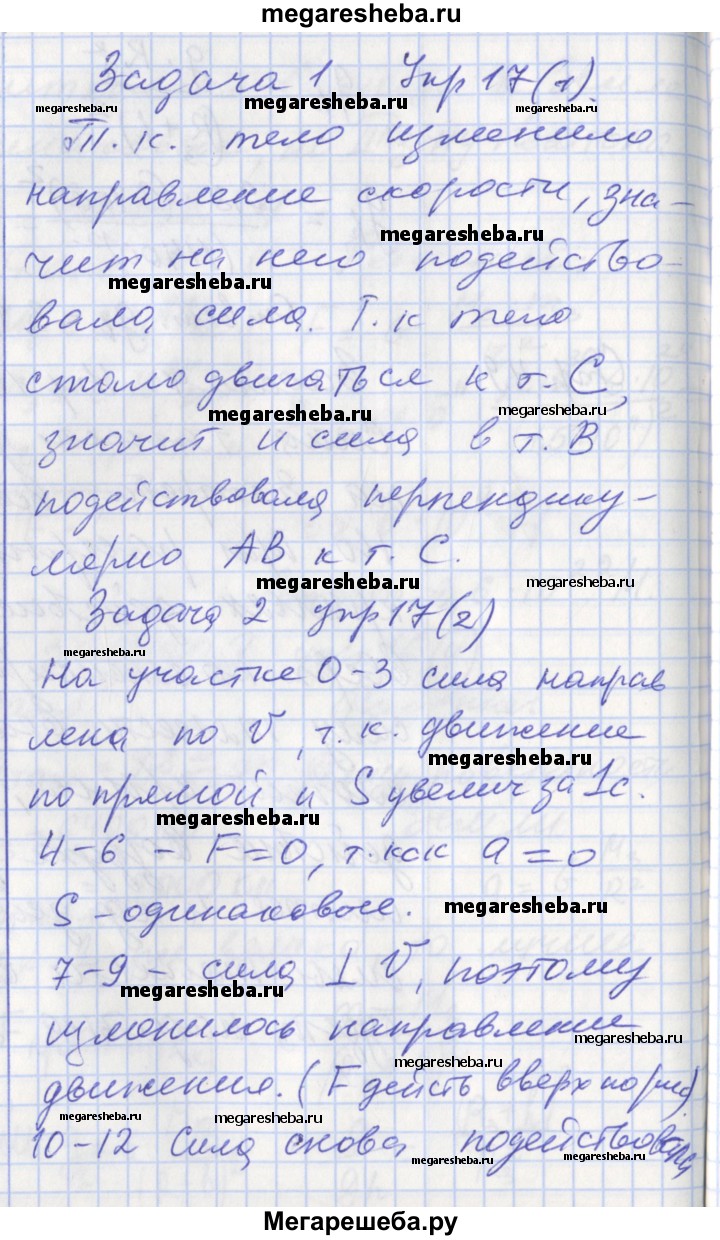 megaresheba.ru
Задача 1 Упр 17(1).
megaresheba.ru megaresheba.ru megaresheba.ru
Т.к. тело изменило
направление скорости, зна-
megaresheba.ru
чит на него подейство-
megaresheba.ru
вала сила. Т.к тело
стало двигаться к т. С,
megaresheba.ru megaresheba.ru
значит и сила в т. В
подействовала перпендику-
лярно АВ к т. С.
megaresheba.ru megaresheba.ru
Задача 2 упр 17(2)
megaresheba.ru
На участке 0-3 сила направ
лена по V, т.к. движение
megaresheba.ru
по прямой и S увелич за 1с.
megaresheba.ru
4-6 - F=0, т.как a=0
S - одинаковое.
megaresheba.ru
7-9 - сила ⊥ V, поэтому
megaresheba.ru
изменилось направление
megaresheba.ru
megaresheba.ru
движения. (F действ вверх по рис).
megaresheba.ru megaresheba.ru megaresheba.ru
10-12 Сила снова подействовала
megaresheba.ru megaresheba.ru
Мегарешеба.ру